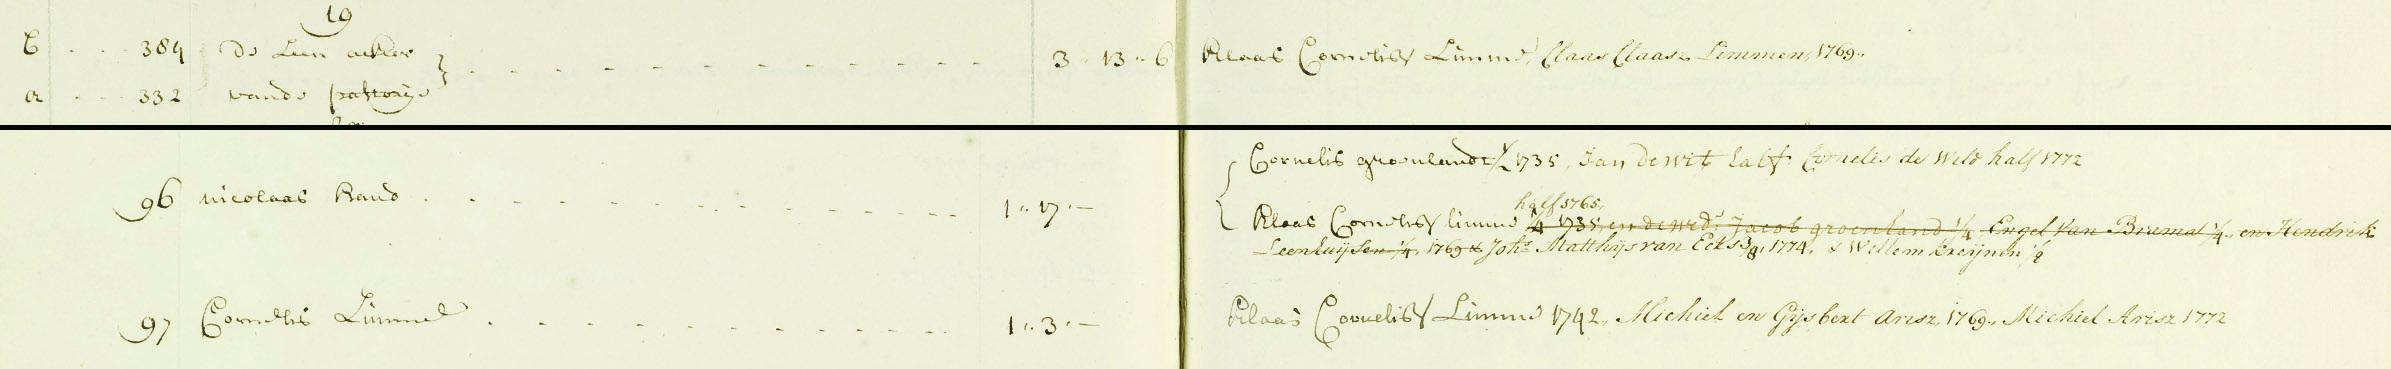 19
C . . . 384 De Leen acker
} . . . . . . . . . . . . . . 3 " 13 " 6 Klaas Cornelisz Limme, Claas Claasz. Limmen, 1769.,
a . . . 332 vande pastorije
{ Cornelis groenlandt 1/2 1735, Jan de wit half Cornelis de Wild half 1772
96 nicolaas . . . . . . . . . . . . . . 1 " 17 " —
half 1765,
Klaas Cornelisz limme 1/4 1735, en de wed.e Jacob groenland 1/4, Engel Van Brumal 1/4, en Hendrik
Leenhuijsen 1/4, 1769 & Joh.s Matthijs van Eck 3/8, 1774, & Willem 1/2
97 Cornelis Limmel . . . . . . . . . . . 1 " 3 " — Klaas Cornelisz Limme 1742., Michiel en Gijsbert Arisz, 1769., Michiel Arisz 1772